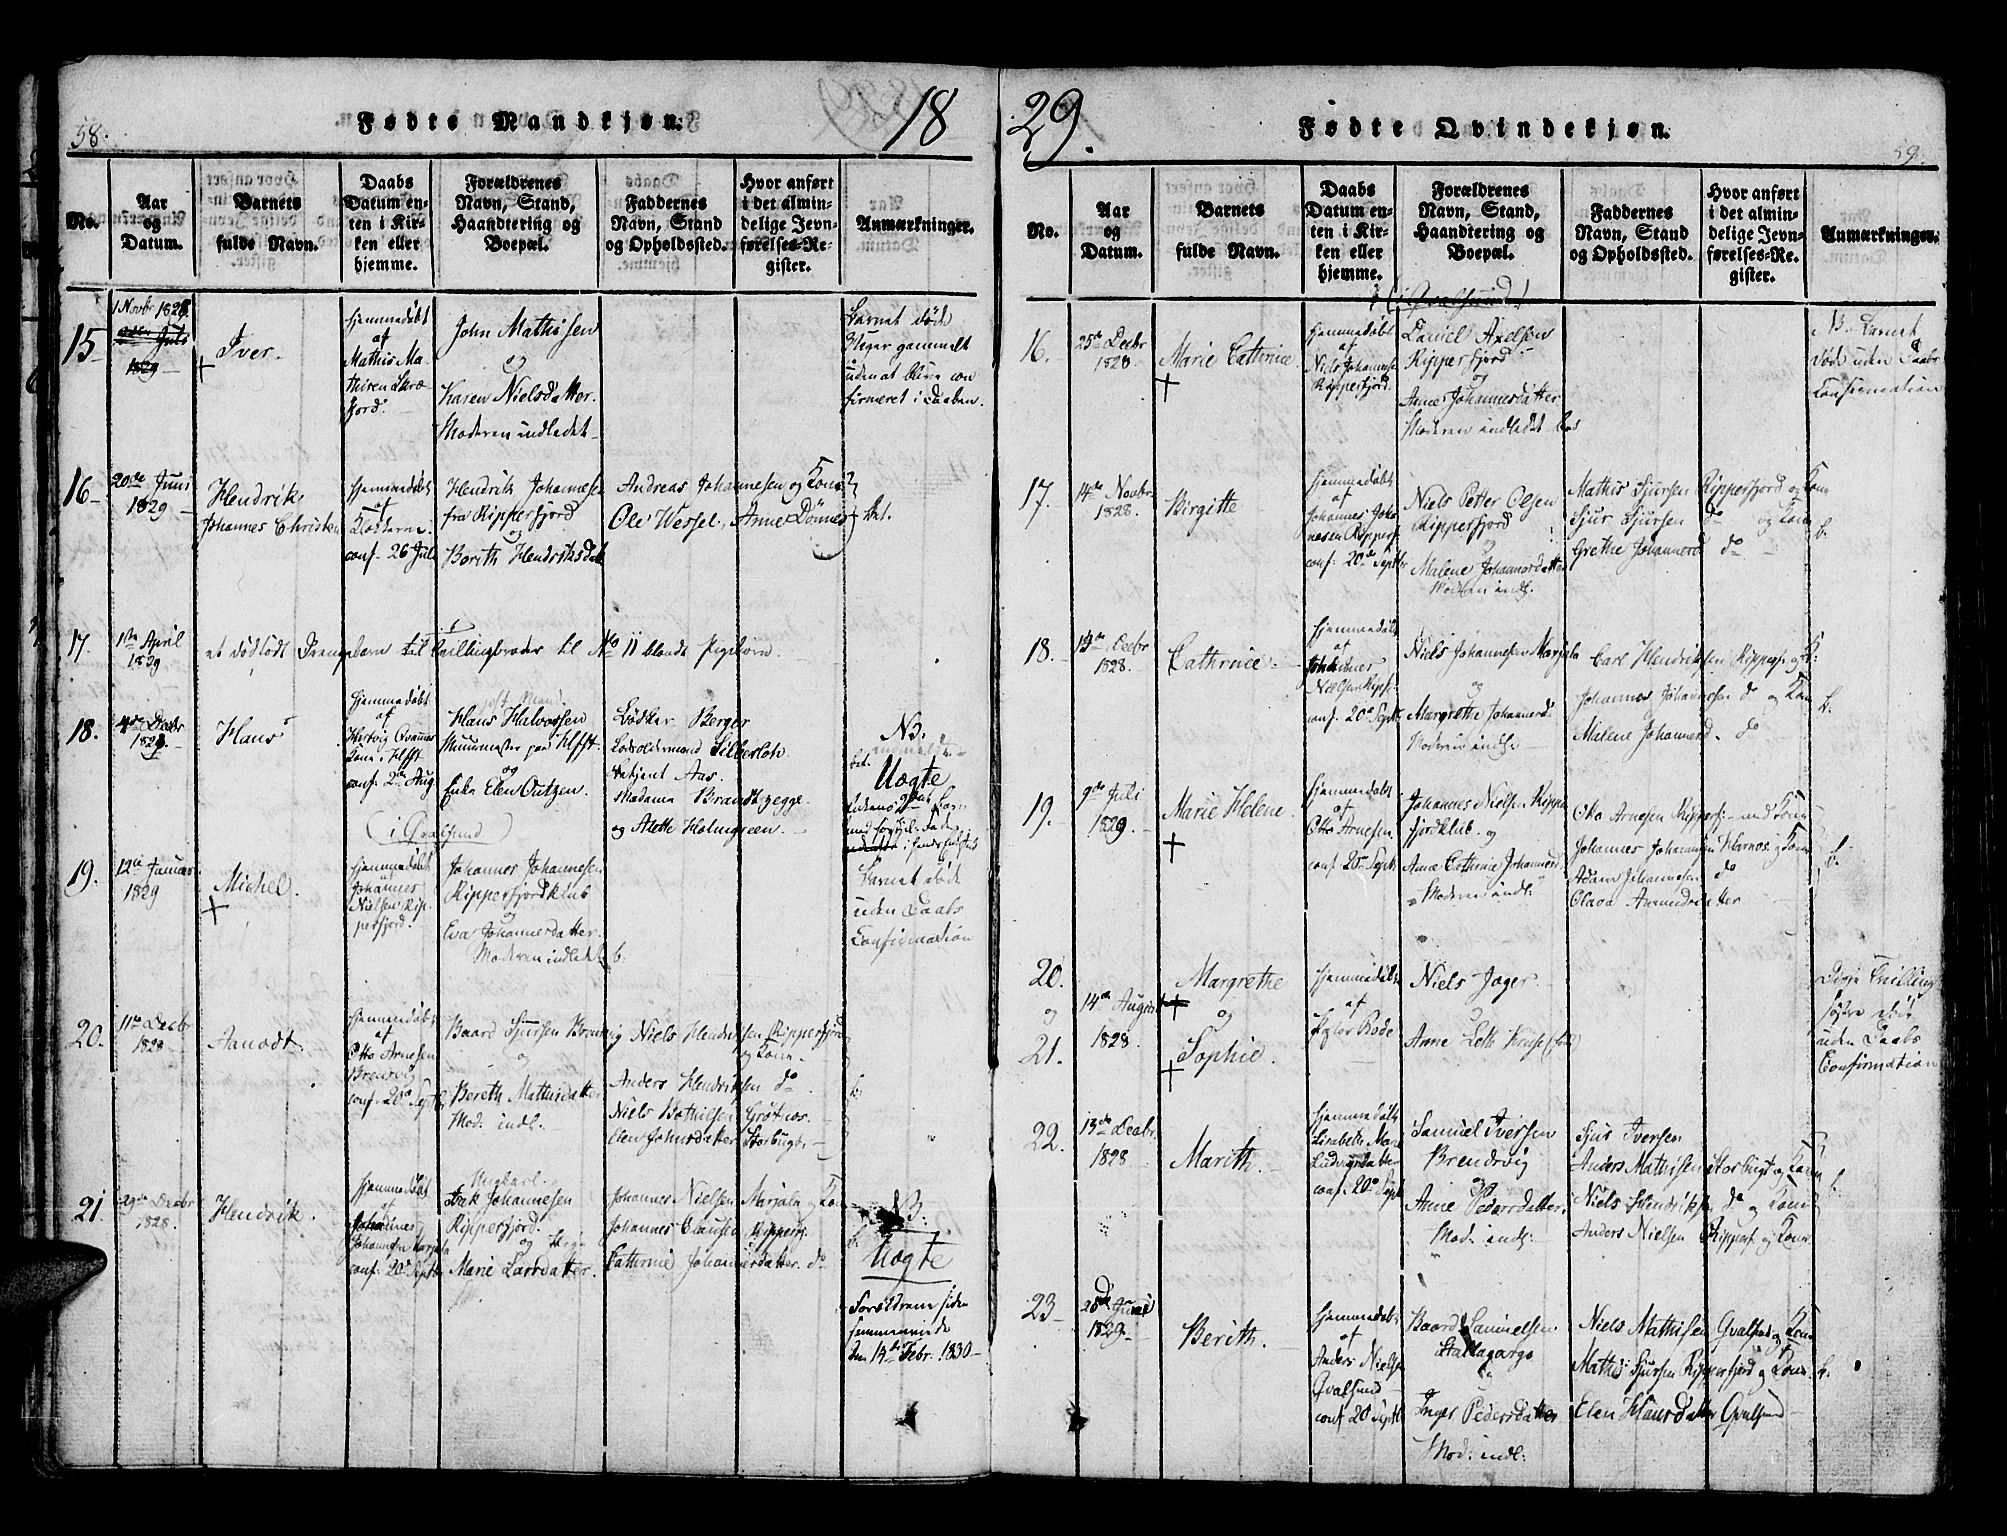 58.
Fødte Mandkjøn.
18
No.
Aar
og
Datum.
Barnets
fulde Navn.
Daabs
Datum en-
ten i Kir-
ken eller
hjemme.
Forældrenes
Navn, Stand,
Haandtering og
Boepæl.
Faddernes
Navn, Stand
og Opholdssted.
Hvor anført
i det almin-
delige Jevn-
førelses-Re-
gister.
Anmærkninger.
15
1 Novbr 1828.
Juli
1829
Iver.
hjemmedøbt
af
Mathis Ma-
thisen
fjord.
John Mathisen
og
Karen Nielsdatter.
Moderen indledet
Barnet døde
Uger gammelt
uden at blive con
firmeret i Daaben.
16
20de Juni
1829
Hendrik
Johannes Christian
hjemmedøbt
af
Klokkeren
conf. 26 Juli
Hendrik Johannesen
fra Ripperfjord
og
Berith Hendriksdat
Andreas Johannesen og Kone
Ole Wessel, Anne Dönnes
bet.
17.
1ste April
1829
et dödfödt Drengebarn til Tvillingbroder til No 11 blandt Pigebörn.
18.
4de Decbr
1828.
Hans
hjemmedøbt
af
Kone. Hfst.
conf. 2den Aug
Hans Halvorsen
Muurmester paa Hfst.
og
Enke Elen Outzen.
Bødker Berger
Lodsoldermand Silberlov
Betjent Aas.
Madame Brandt
og Alette Holmgreen.
NB.
Uægte
19.
12te Januar
1829
Michel.
hjemmedøbt
af
Johannes
Nielsen Rip-
perfjord.
(i Qvalsund)
Johannes Johannesen
Ripperfjordklub
og
Eva Johannesdatter.
Moderen indledet b.
Barnet døde
uden Daabs
Confirmation
20.
11te Decbr
1828
Aanodt.
hjemmedøbt
af
Otto Arnesen
Brenvig
conf. 20de Septbr
Baard Sjursen Brenvig
og
Berith Mathisdatter
Mod. indl.
Niels Hendriksen Ripperfjord
og Kone.
Anders Hendriksen do
Niels Bothilsen Grötnes.
Elen Johnsdatter Storbugt.
b.
21
29de Decbr
1828.
Hendrik.
hjemmedøbt
af
Johannes
Johannesen Marjala
conf. 20de Septbr
Ungkarl.
Isak Johannesen
Ripperfjord.
og
Marie Larsdatter.
Johannes Nielsen Marjala og Kone
Johannes Clausen Ripperf.
Cathrine Johannesdatter. do
b.
NB.
Uægte
Forældrene siden
sammenviede
den 14de Febr. 1830
29.
Fødte Qvindekjøn.
59.
No.
Aar
og
Datum.
Barnets
fulde Navn.
Daabs
Datum en-
ten i Kir-
ken eller
hjemme.
Forældrenes
Navn, Stand,
Haandtering og
Boepæl.
Faddernes
Navn, Stand
og Opholdssted.
Hvor anført
i det almin-
delige Jevn-
førelses-Re-
gister.
Anmærkninger.
(i Qvalsund)
16.
25de Decbr
1828.
Marie Cathrine
hjemmedøbt
af
Niels Johannesen
Ripperfjord.
Daniel Axelsen
Ripperfjord
og
Anne Johannesdatter
Moderen indledet
NB. Barnet
døde uden Daabs
Confirmation
17.
14de Novbr.
1828.
Birgitte
hjemmedøbt
af
Johannes Joha
nesen Ripperf.
conf. 20de Septbr
Niels Petter Olsen
Ripperfjord
og
Malene Johannesdatter
Moderen indl.
Mathis Sjursen Ripperfjord og Kone
Sjur Sjursen do og Kone
Grethe Johannesd do
b.
18.
1828.
Cathrine.
hjemmedøbt
af
Johannes
Nielsen Ripf.
conf. 20de Septbr
Niels Johannesen Marjala
og
Margrethe Johannesd
Moderen indl.
Carl Hendriksen Ripperf. og K.
Johannes Johannesen do og Kone
Malene Johannesd. do
b.
19.
9de Juli
1829.
Marie Helene
hjemmedøbt
af
Otto Arnesen
conf. 20de Septbr
Johannes Nielsen Ripper
fjordklub. og
Anne Cathrine Johannesd
Moderen indl.
Otto Arnesen Ripperf. med Kone
Johannes Johannesen Klarnes og Kone
Adam Johannesen do
Olava Amundsdatter
b.
20.
og
21.
14de August
1828.
Margrethe
og
Sophie.
hjemmedøbt
af
Rode
Niels Jager.
og
Anne Leth Kruse
Disse Tvilling
søstre døde
uden Daabs
Confirmation
22.
13de Decbr.
1828
Marith.
hjemmedøbt
af
Lisabeth Marie
Ludvigsdatter
conf. 20de Septbr
Samuel Iversen
Brendvig
og
Anne Pedersdatter.
Mod. indl.
Sjur Iversen
Anders Mathisen Storbugt og Kone
Niels Hendriksen do og Kone
Anders Nielsen Ripperf. og Kone
b.
23
28de Juni
1829
Berith.
hjemmedøbt
af
Anders Nielsen
Qvalsund
conf. 20 Septbr
Baard Samuelsen
Stallogargo
og
Inger Pedersdatter
Mod. indl.
Niels Mathisen Qvalsund og Kone
Mathis Sjursen Ripperfjord og Kone.
Elen Hansdatter Qvalsund
b.